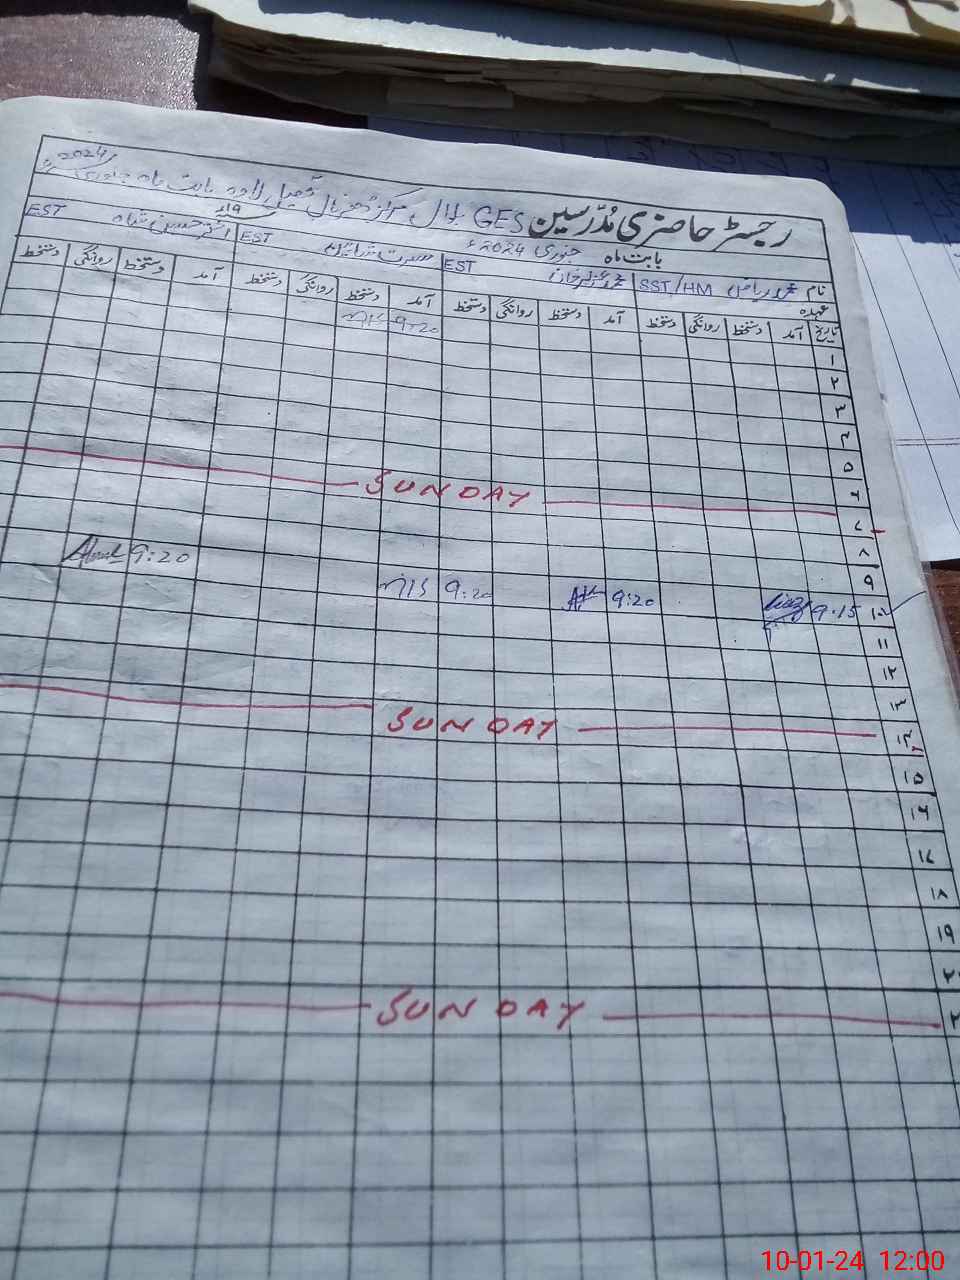 2024
رجسٹر حاضری مُدّرسین GES بلال مرکز ڈھرنال تحصیل لاوہ بابت ماہ جنوری
بابت ماہ جنوری 2024ء
نام محمد ریاض SST/HM محمد خان EST مسرت EST اختر حسین شاہ EST
عہدہ
تاریخ آمد دستخط روانگی دستخط آمد دستخط روانگی دستخط آمد دستخط روانگی دستخط آمد دستخط روانگی دستخط
۱ 9:20
۲
۳
۴
۵
۶
۷ SUNDAY
۸
۹
۱۰ 9:15 9:20 9:20 9:20
۱۱
۱۲
۱۳
۱۴ SUNDAY
۱۵
۱۶
۱۷
۱۸
۱۹
۲۰
SUNDAY
10-01-24 12:00